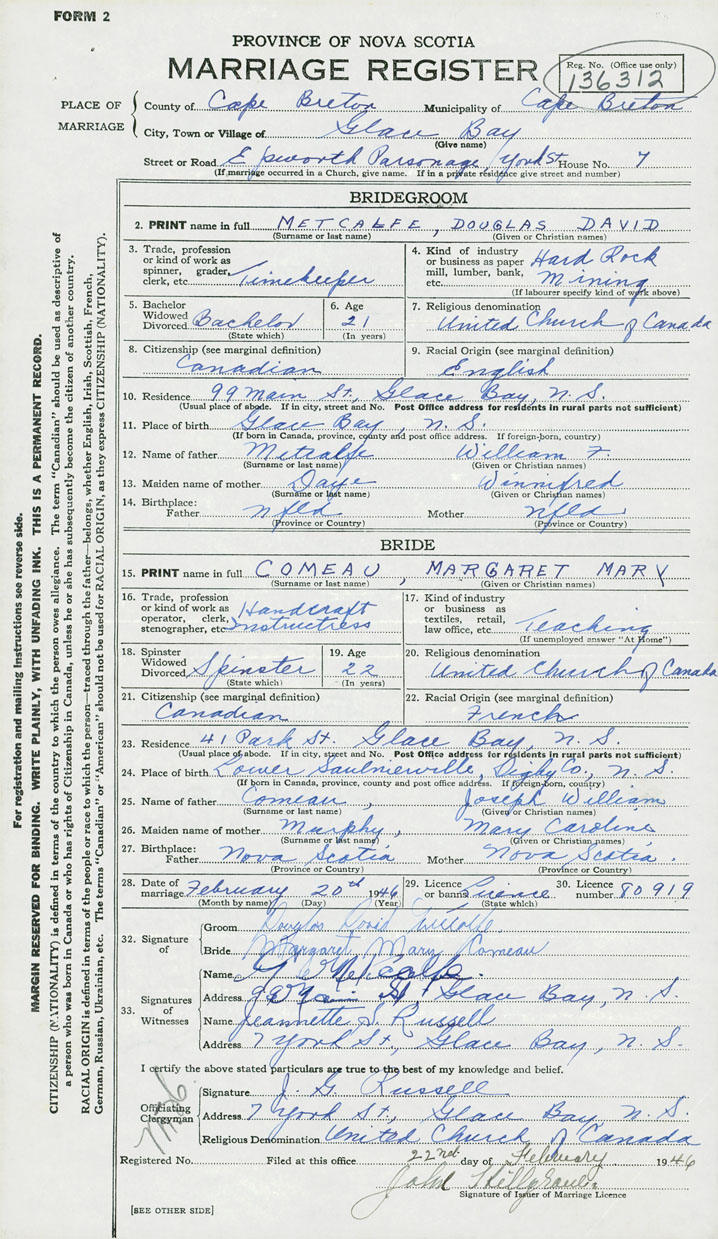 FORM 2
PROVINCE OF NOVA SCOTIA
MARRIAGE REGISTER
Reg. No. (Office use only)
136312
PLACE OF MARRIAGE
County of Cape Breton Municipality of Cape Breton
City, Town or Village of Glace Bay
(Give name)
Street or Road Epsworth Parsonage, York St House No. 7
(If marriage occurred in a Church, give name. If in a private residence give street and number)
BRIDEGROOM
2. PRINT name in full METCALFE, DOUGLAS DAVID
(Surname or last name) (Given or Christian names)
3. Trade, profession or kind of work as spinner, grader, clerk, etc. Timekeeper
4. Kind of industry or business as paper mill, lumber, bank, etc. Hard Rock Mining
(If labourer specify kind of work above)
5. Bachelor Widowed Divorced Bachelor
(State which)
6. Age 21
(In years)
7. Religious denomination
United Church of Canada
8. Citizenship (see marginal definition)
Canadian
9. Racial Origin (see marginal definition)
English
10. Residence 99 Main St., Glace Bay, N. S.
(Usual place of abode. If in city, street and No. Post Office address for residents in rural parts not sufficient)
11. Place of birth Glace Bay, N. S.
(If born in Canada, province, county and post office address. If foreign-born, country)
12. Name of father Metcalfe William F.
(Surname or last name) (Given or Christian names)
13. Maiden name of mother Daye Winnifred
(Surname or last name) (Given or Christian names)
14. Birthplace:
Father Nfld Mother Nfld.
(Province or Country) (Province or Country)
BRIDE
15. PRINT name in full COMEAU, MARGARET MARY
(Surname or last name) (Given or Christian names)
16. Trade, profession or kind of work as operator, clerk, stenographer, etc. Handcraft Instructress
17. Kind of industry or business as textiles, retail, law office, etc. Teaching
(If unemployed answer "At Home")
18. Spinster Widowed Divorced Spinster
(State which)
19. Age 22
(In years)
20. Religious denomination
United Church of Canada
21. Citizenship (see marginal definition)
Canadian
22. Racial Origin (see marginal definition)
French
23. Residence 41 Park St. Glace Bay, N. S.
(Usual place of abode. If in city, street and No. Post Office address for residents in rural parts not sufficient)
24. Place of birth Lower Saulnierville, Digby Co., N. S.
(If born in Canada, province, county and post office address. If foreign-born, country)
25. Name of father Comeau, Joseph William
(Surname or last name) (Given or Christian names)
26. Maiden name of mother Murphy, Mary Caroline
(Surname or last name) (Given or Christian names)
27. Birthplace:
Father Nova Scotia Mother Nova Scotia.
(Province or Country) (Province or Country)
28. Date of marriage February 20th 1946
(Month by name) (Day) (Year)
29. Licence or banns Licence
(State which)
30. Licence number 80919
32. Signature of
Groom Douglas David Metcalfe
Bride Margaret Mary Comeau
33. Signatures of Witnesses
Name Metcalfe.
Address 99 Main St, Glace Bay, N. S.
Name Jeannette S. Russell
Address 7 York St, Glace Bay, N. S.
I certify the above stated particulars are true to the best of my knowledge and belief.
Officiating Clergyman
Signature J. G. Russell
Address 7 York St, Glace Bay, N. S.
Religious Denomination United Church of Canada
Registered No. Filed at this office 22nd day of February 1946
John
Signature of Issuer of Marriage Licence
[SEE OTHER SIDE]
For registration and mailing instructions see reverse side.
MARGIN RESERVED FOR BINDING. WRITE PLAINLY, WITH UNFADING INK. THIS IS A PERMANENT RECORD.
CITIZENSHIP (NATIONALITY) is defined in terms of the country to which the person owes allegiance. The term "Canadian" should be used as descriptive of
a person who was born in Canada or who has rights of Citizenship in Canada, unless he or she has subsequently become the citizen of another country.
RACIAL ORIGIN is defined in terms of the people or race to which the person—traced through the father—belongs, whether English, Irish, Scottish, French,
German, Russian, Ukrainian, etc. The terms "Canadian" or "American" should not be used for RACIAL ORIGIN, as they express CITIZENSHIP (NATIONALITY).